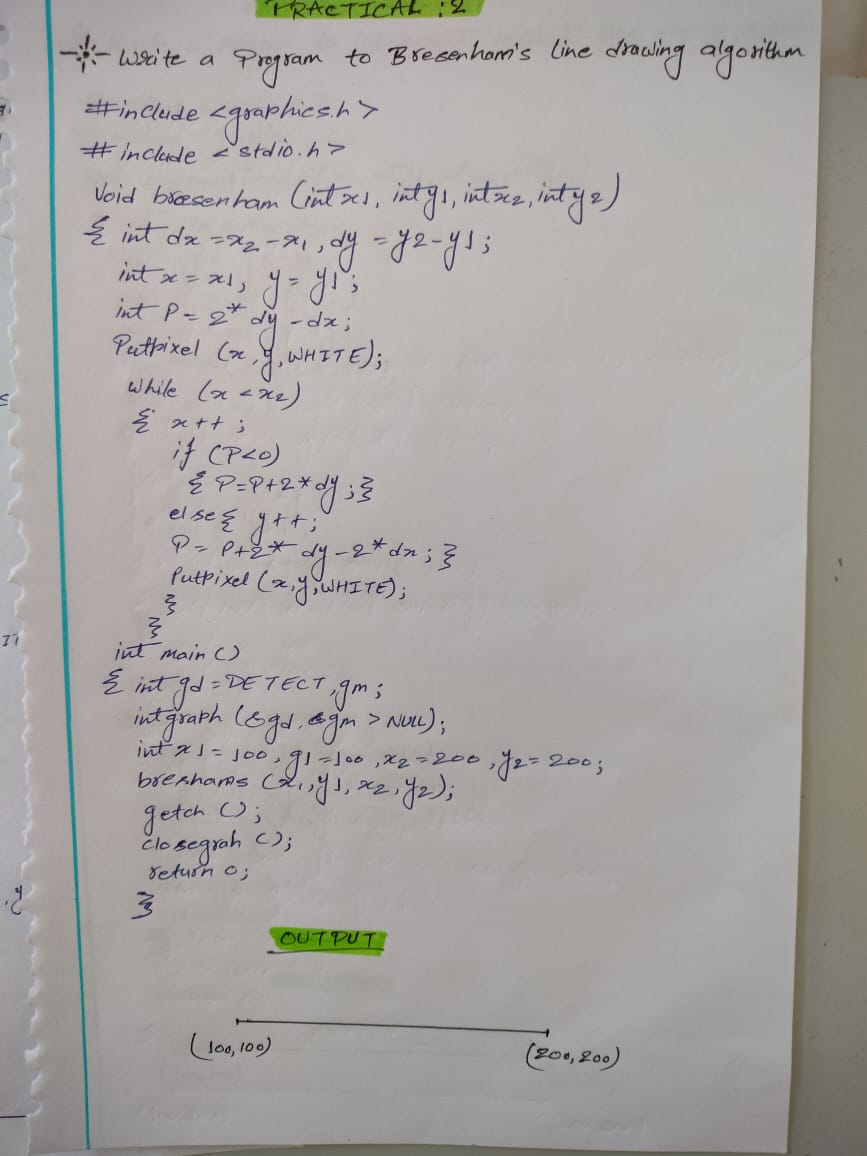 PRACTICAL : 2
Write a Program to Bresenham's line drawing algorithm
#include <graphics.h>
#include <stdio.h>
Void bresenham (int x1, int y1, int x2, int y2)
{ int dx = x2 - x1, dy = y2 - y1;
int x = x1, y = y1;
int P = 2* dy - dx;
Putpixel (x, y, WHITE);
while (x < x2)
{ x++;
if (P<0)
{ P=P+2*dy;}
else{ y++;
P = P+2* dy - 2* dx; }
Putpixel (x, y, WHITE);
}
}
int main ()
{ int gd = DETECT, gm;
intgraph (&gd, &gm > NULL);
int x1 = 100, y1 = 100, x2 = 200, y2 = 200;
breshams (x1, y1, x2, y2);
getch ();
closegrah ();
return 0;
}
OUTPUT
(100,100)
(200,200)